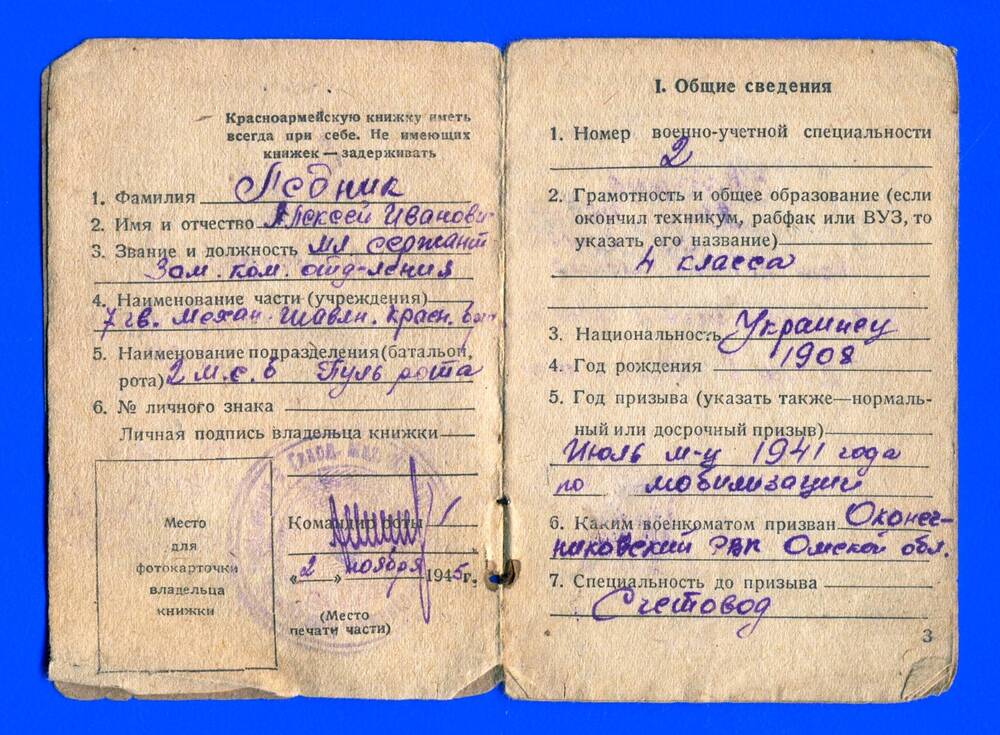 Красноармейскую книжку иметь
всегда при себе. Не имеющих
книжек — задерживать
1. Фамилия Ледник
2. Имя и отчество Алексей Иванович
3. Звание и должность мл. сержант
Зам. ком. отд-ления
4. Наименование части (учреждения)
7 гв. механ. Шавлин. Красн.
5. Наименование подразделения (батальон,
рота) 2 м.с.б Пуль рота
6. № личного знака
Личная подпись владельца книжки
Место
для
фотокарточки
владельца
книжки
Командир роты
«2» ноября 1945 г.
(Место
печати части)
I. Общие сведения
1. Номер военно-учетной специальности
2
2. Грамотность и общее образование (если
окончил техникум, рабфак или ВУЗ, то
указать его название)
4 класса
3. Национальность Украинец
4. Год рождения 1908
5. Год призыва (указать также—нормаль-
ный или досрочный призыв)
Июль м-ц 1941 года
по мобилизации
6. Каким военкоматом призван Оконеч-
никовский РВК Омской обл.
7. Специальность до призыва
Счетовод
3